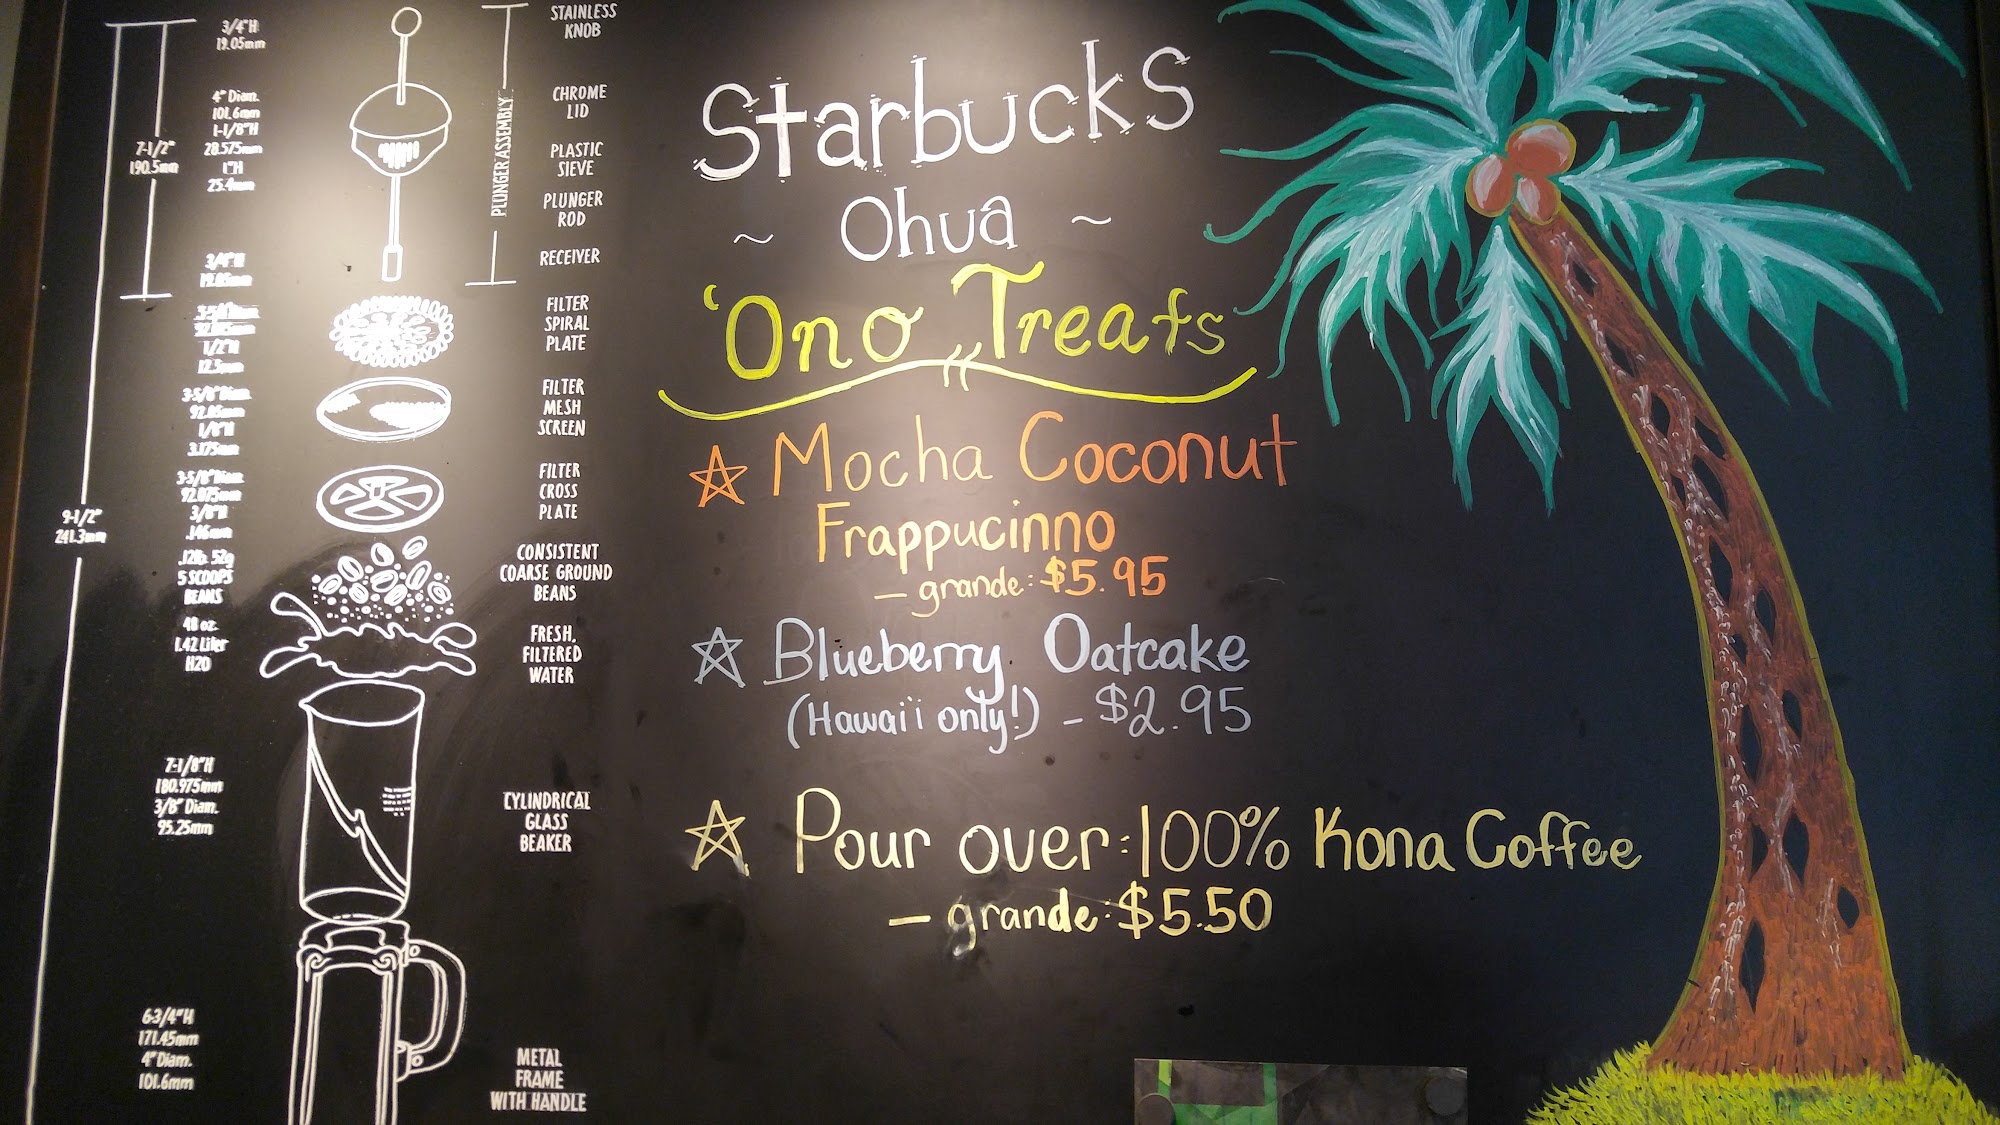 3/4"H
19.05mm
4" Diam.
101.6mm
1-1/8"H
28.575mm
1"H
25.4mm
7-1/2"
190.5mm
3/4"H
19.05mm
3-5/8" Diam.
1/2"H
12.5mm
3-5/8" Diam.
1/8"H
3.175mm
3-5/8" Diam.
92.075mm
3/8"H
.146mm
9-1/2"
241.3mm
.12lb. 52g
5 SCOOPS
BEANS
48 oz.
1.42 Liter
H2O
7-1/8"H
180.975mm
3/8" Diam.
95.25mm
6-3/4"H
171.45mm
4" Diam.
101.6mm
STAINLESS
KNOB
CHROME
LID
PLASTIC
SIEVE
PLUNGER
ROD
RECEIVER
PLUNGER ASSEMBLY
FILTER
SPIRAL
PLATE
FILTER
MESH
SCREEN
FILTER
CROSS
PLATE
CONSISTENT
COARSE GROUND
BEANS
FRESH,
FILTERED
WATER
CYLINDRICAL
GLASS
BEAKER
METAL
FRAME
WITH HANDLE
Starbucks
~ Ohua ~
'Ono Treats
Mocha Coconut
Frappucinno
- grande: $5.95
Blueberry Oatcake
(Hawai'i only!) - $2.95
Pour over: 100% Kona Coffee
- grande: $5.50